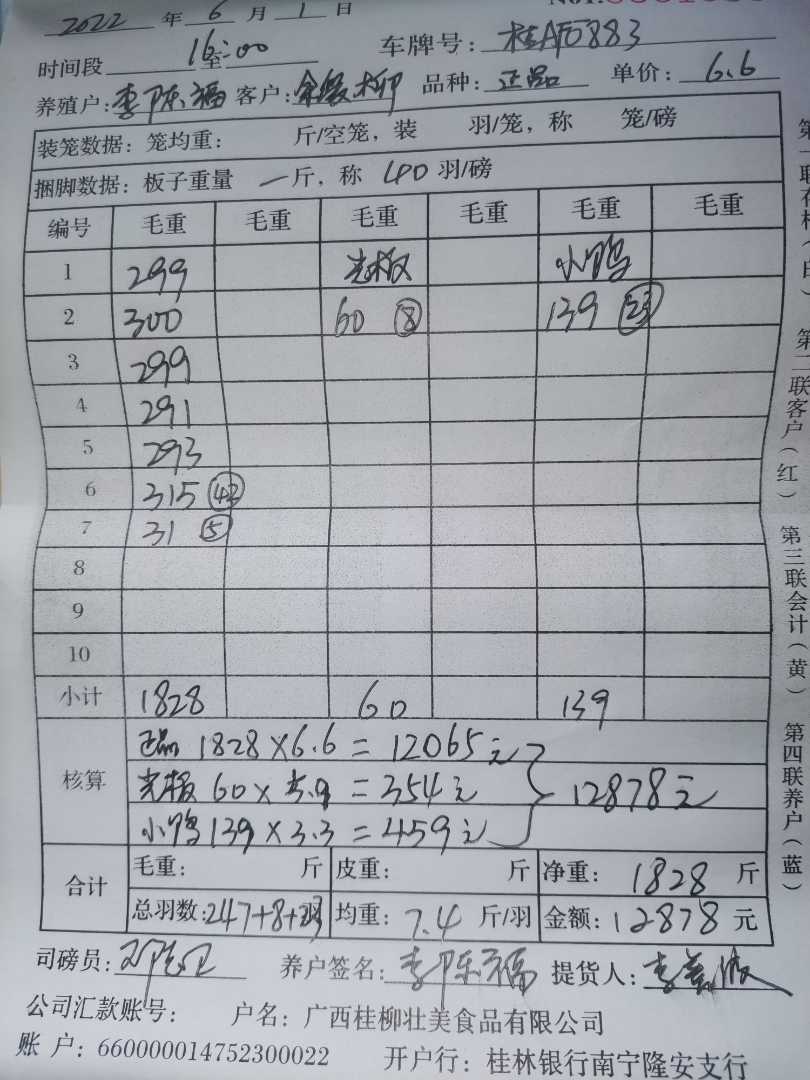 2022 年 6 月 1 日
时间段 16:00 至 车牌号: 883
养殖户: 李陈福 客户: 柳 品种: 正品 单价: 6.6
装笼数据: 笼均重: 斤/空笼, 装 羽/笼, 称 笼/磅
捆脚数据: 板子重量 一斤, 称 40 羽/磅
编号 毛重 毛重 毛重 毛重 毛重 毛重
1 299 光板 小鸭
2 300 60 ⑧ 139 23
3 299
4 291
5 293
6 315 42
7 31 ⑤
8
9
10
小计 1828 60 139
核算
正品 1828×6.6=12065元
光板 60×5.9=354元
小鸭 139×3.3=459元
12878元
合计
毛重: 斤 皮重: 斤 净重: 1828 斤
总羽数: 247+8+23 均重: 7.4 斤/羽 金额: 12878 元
司磅员: 养户签名: 李陈福 提货人: 李
公司汇款账号: 户名: 广西桂柳壮美食品有限公司
账 户: 660000014752300022 开户行: 桂林银行南宁隆安支行
第二联客户(红)
第三联会计(黄)
第四联养户(蓝)